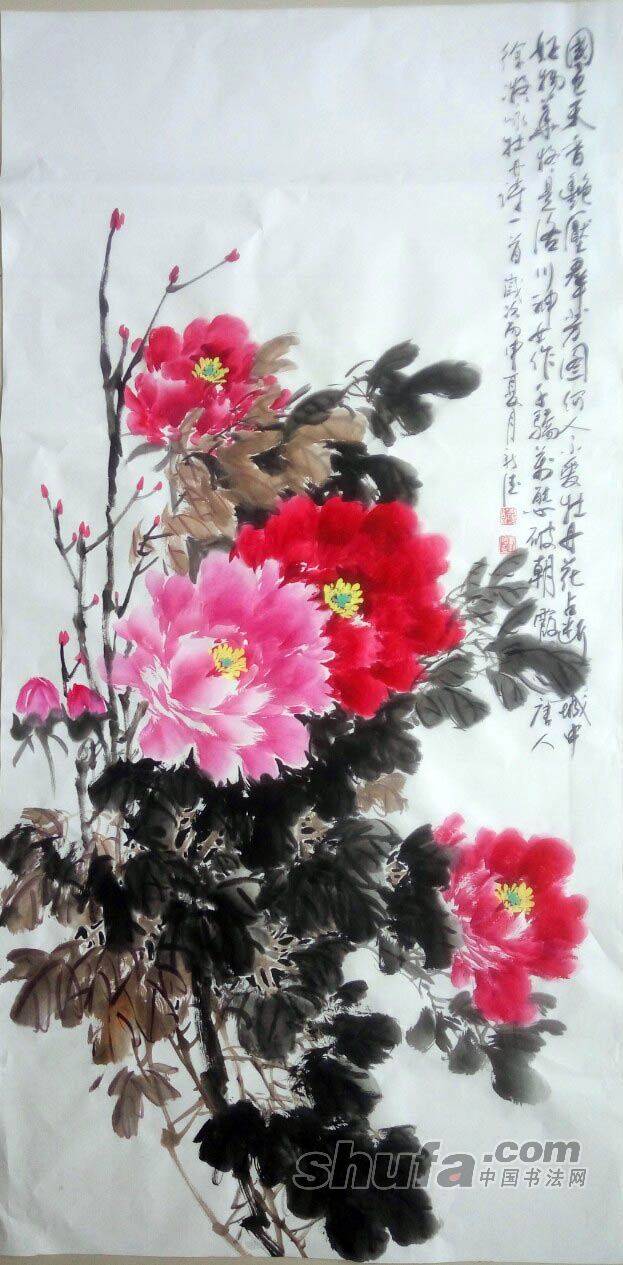 國色天香艷壓羣芳图何人不爱牡丹花占断城中
好物華疑是洛川神女作千骄萬態破朝霞唐人
徐凝咏牡丹诗一首歲次丙申夏月
shufa.com
中国书法网